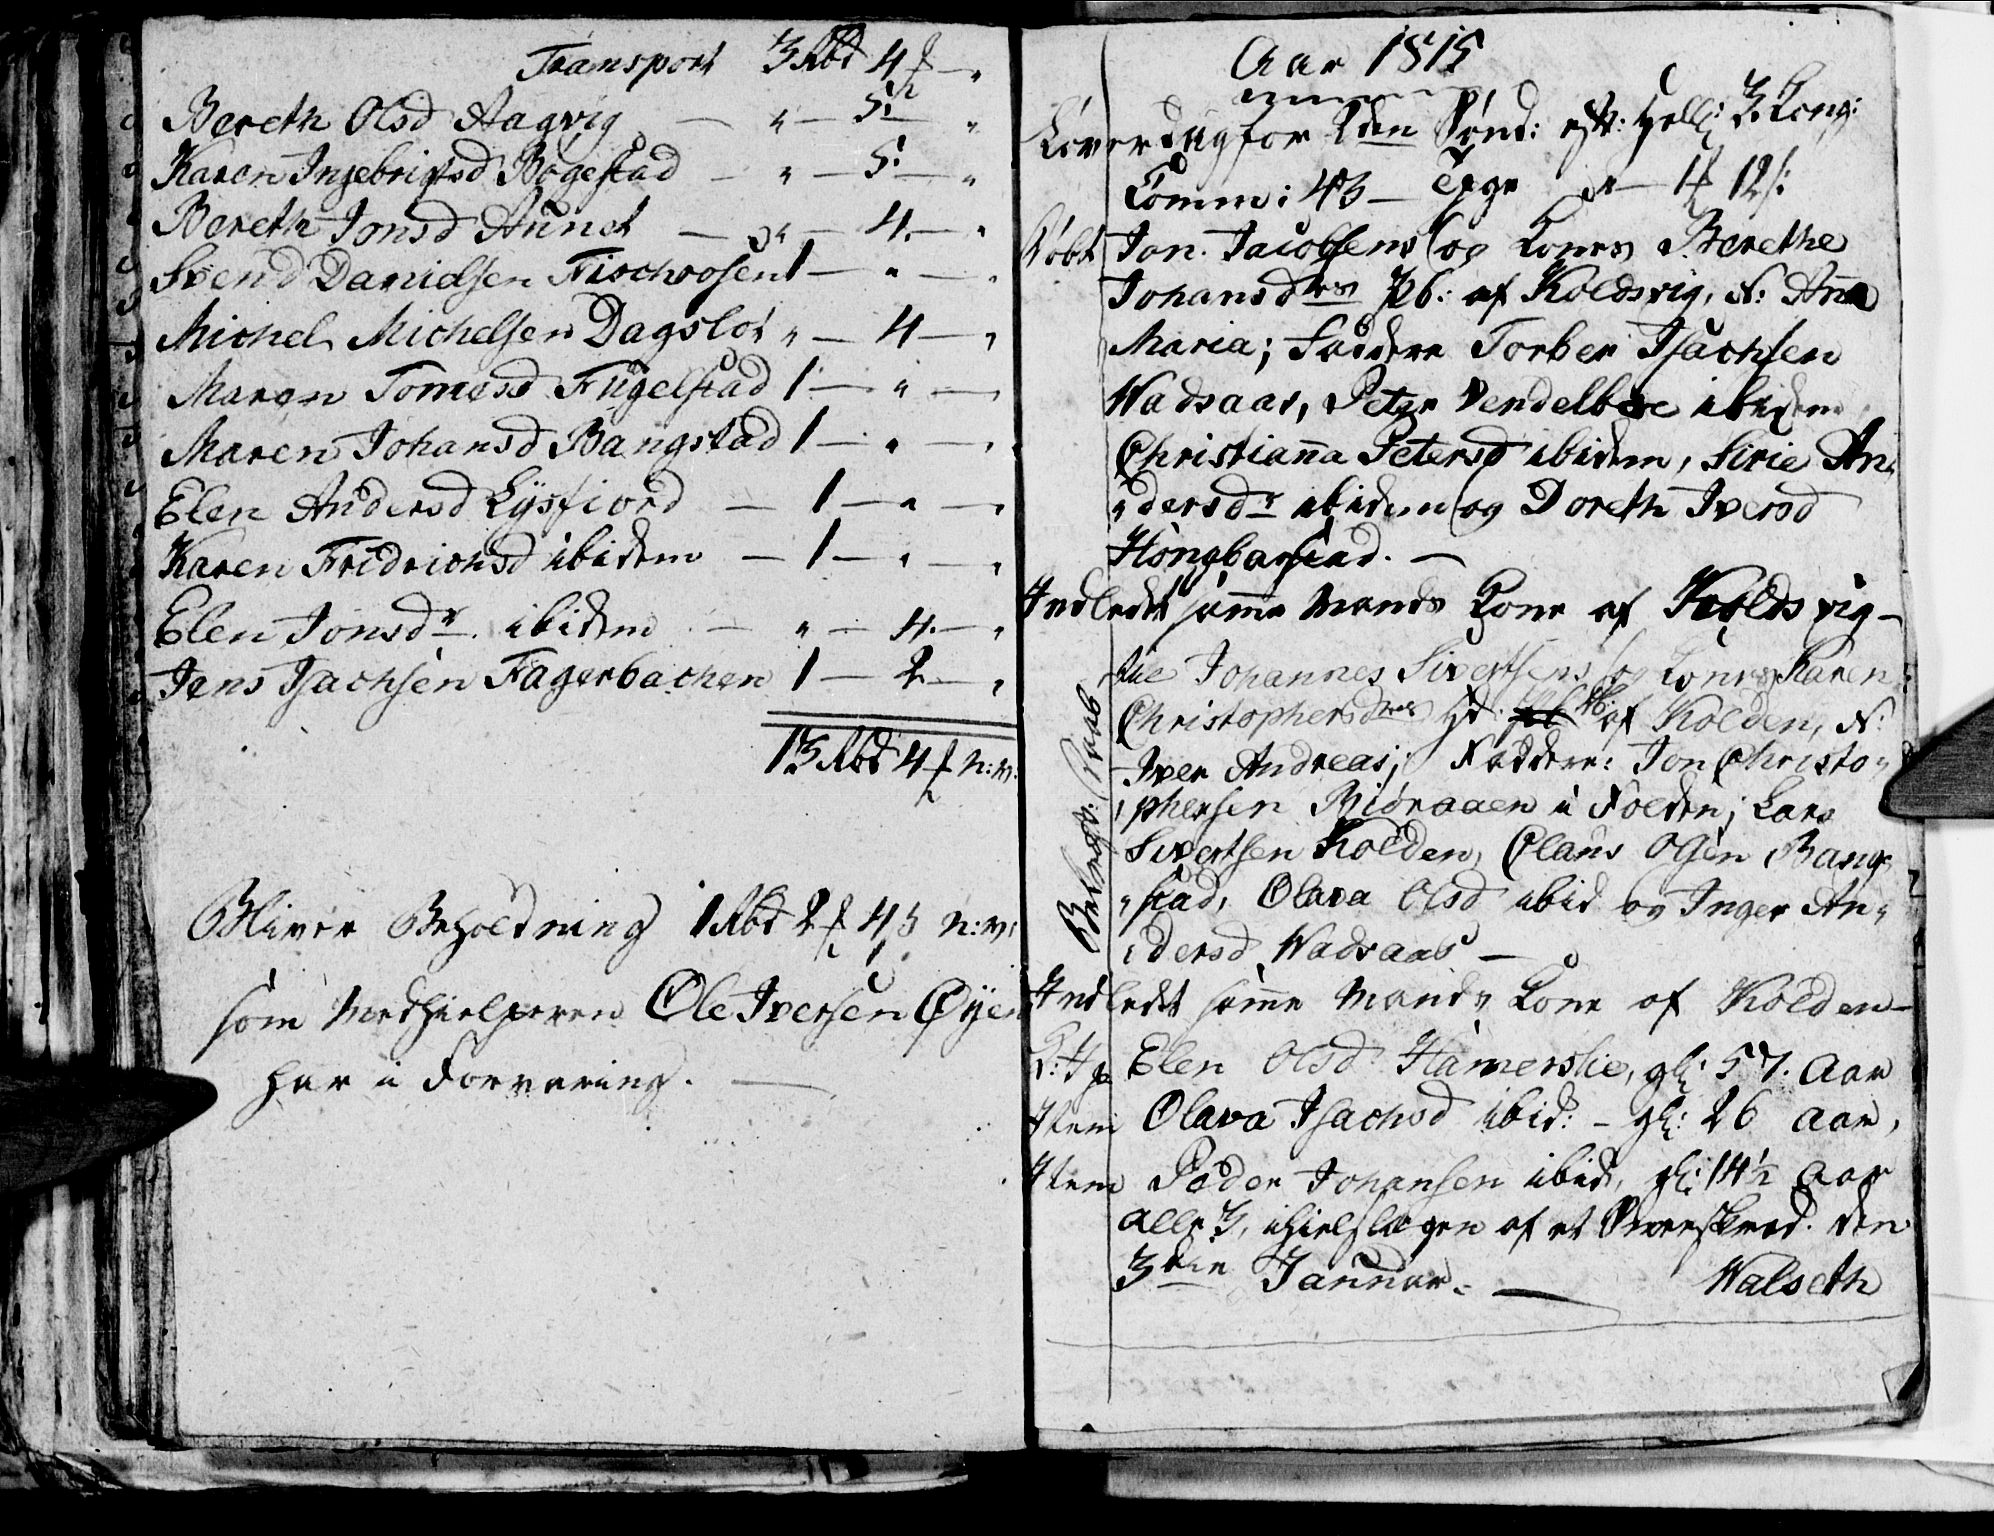 Transport 3 Rbd 4 ſ — „
Bereth Olsd Aagvig — „ — 5. — „
Karen Ingebrigtsd Bogestad — „ — 5. — „
Bereth Jonsd Aunet — „ — 4. — „
Svend Danielsen Fischvosen 1 — „ — „
Michel Michelsen Dagslot „ — 4 — „
Maren Tomesd Fugelstad 1 — „ — „
Maren Johansd Bangstad 1 — „ — „
Elen Andersd Lysfiord — 1 — „ — „
Karen Fridrichsd ibidem — 1 — „ — „
Elen Jonsdr ibidem — „ — 4. — „
Jens Isachsen Fagerbachen 1 — 2 — „
13 Rbd 4 n: v:
Bliver Beholdning 1 Rbd 2 4 ß n: v:
som Medhielperen Ole Iversen Øyen
har i Forvaring. —
Aar 1815
Løverdag for 2den Sønd: eft: Hell: 3 Kong:
Comm: 43 — 1 12 ß:
Døbt Jon Jacobsens og Kones Berethe
Johansdtrs Pb: af Koldsvig, N: Anna
Maria; Faddere Torber Isachsen
Wadsaas, Peter Vendelboe ibidem
Christianna Petersd ibidem, Sirie An„
„dersdr ibidem og Doreth Iversd
Hongbarstad. —
Indledet samme Mands Kone af Koldsvig —
Johannes Sivertsens og Kones Karen
Christophersdtrs af Kolden, N:
Iver Andreas; Faddere: Jon Christo„
„phersen Biøraaen i Folden; Lars
Sivertsen Kolden, Olaus Olsen Bang„
„stad, Olava Olsd ibid og Inger An„
„dersd Wadsaas —
Indledet samme Mands Kone af Kolden —
J: P Elen Olsd Hamerslie, gl: 57. Aar
Item Olava Isachsd ibid: — gl: 26 Aar,
Item Peder Johansen ibid, gl: 14½ Aar
alle 3, ihielslagen af et Sneeskred den
3die Januar. — Walseth